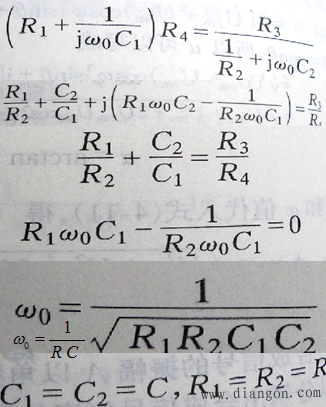 (R₁ + 1/(jω₀C₁)) R₄ = R₃/(1/R₂ + jω₀C₂)
R₁/R₂ + C₂/C₁ + j(R₁ω₀C₂ − 1/(R₂ω₀C₁)) = R₃/R₄
R₁/R₂ + C₂/C₁ = R₃/R₄
R₁ω₀C₁ − 1/(R₂ω₀C₁) = 0
ω₀ = 1/√(R₁R₂C₁C₂)
ω₀ = 1/(RC)
C₁ = C₂ = C, R₁ = R₂ = R
www.diangon.com